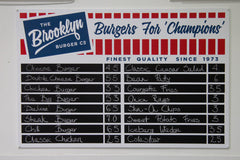 THE Brooklyn BURGER CO
Burgers For 'Champions'
FINEST QUALITY SINCE 1973
Cheese Burger 4.5 Classic Caesar Salad 4
Double Cheese Burger 5.5 Bean Patty 3
Chicken Burger 3.5 Courgette Fries 3.5
The Big Burger 5.5 Onion Rings 3.5
Burger 6.5 Skin-On Chips 3
Steak Burger 7.0 Sweet Potato Fries 3
Chilli Burger 6.5 Iceberg Wedge 3.5
Classic Chicken 2.5 Coleslaw 2.5